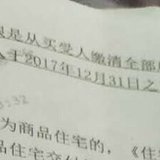 是从买受人缴清全部
于2017年12月31日之
3132
为商品住宅的，《住
品住宅交付